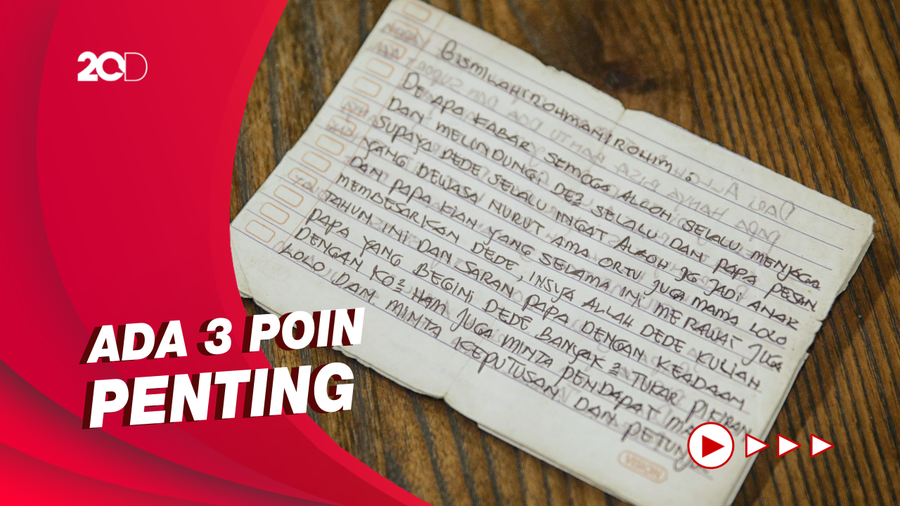 20D
BISMILLAHIROHMANIROHIM.
DE APA KABAR SEMOGA ALLOH SELALU MENJAGA
DAN MELINDUNGI DE2 SELALU DAN PAPA PESAN
SUPAYA DEDE SELALU INGAT ALLOH JG JADI ANAK
YANG DEWASA NURUT AMA ORTU JUGA MAMA LOLO
DAN PAPA KIAN YANG SELAMA INI MERAWAT JUGA
MEMBESARKAN DEDE, INSYA ALLAH DEDE KULIAH
TAHUN INI DAN SARAN PAPA DENGAN KEADAAN
PAPA YANG BEGINI DEDE BANYAK2 TUKAR PIKIRAN
DENGAN KO2 HAM JUGA MINTA PENDAPAT
LOLO DAN MINTA KEPUTUSAN DAN
VISION
ADA 3 POIN
PENTING